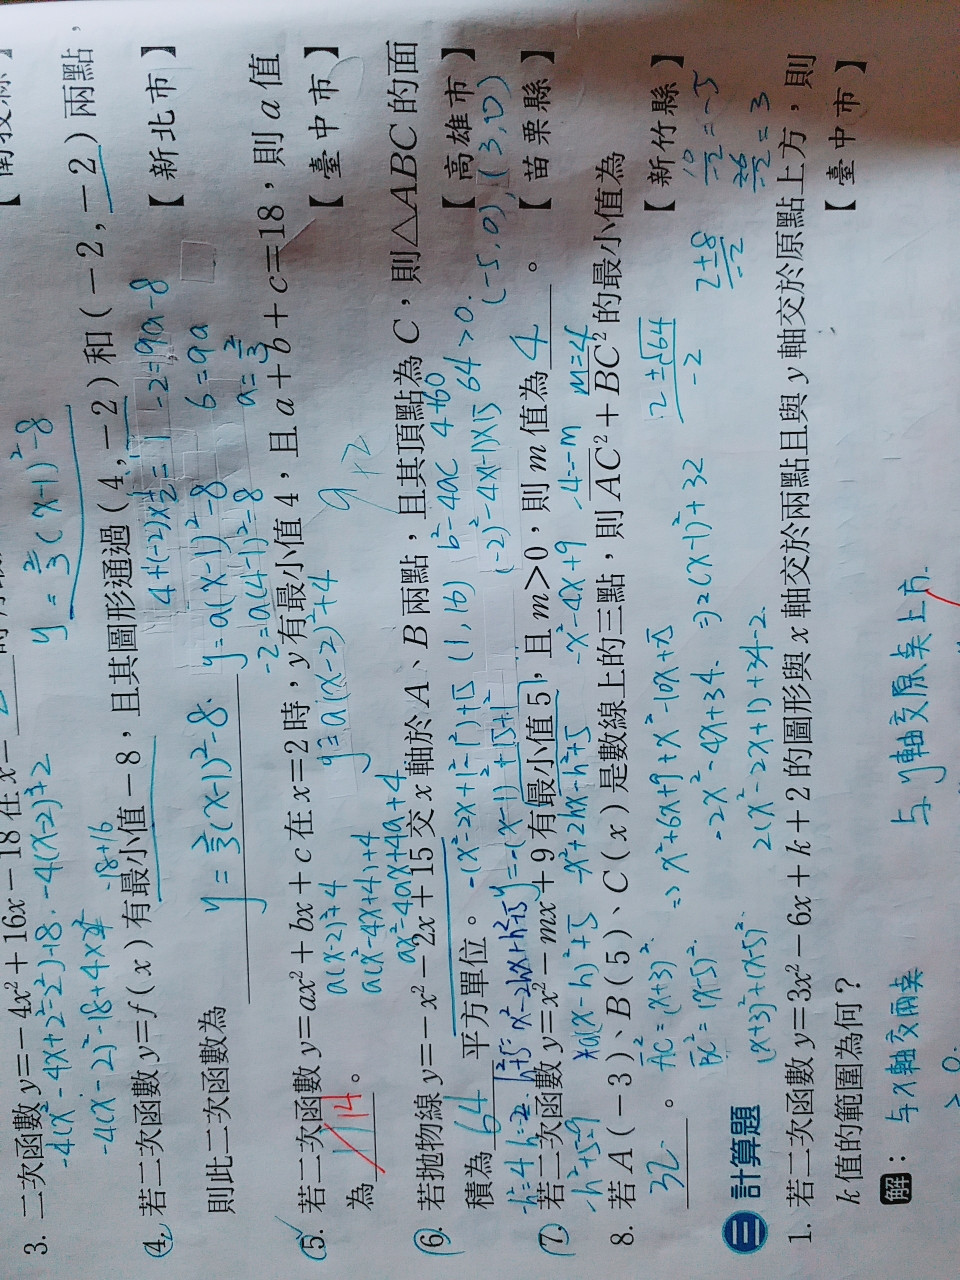 3. 二次函數 y=－4x²＋16x－18 在 x=
-4(x²-4x+2²-2²)-18. -4(x-2)²+2
-4(x-2)²-18+4×4
-18+16
y=⅔(x-1)²-8
4. 若二次函數 y=f(x)有最小值－8，且其圖形通過(4,－2)和(－2,－2)兩點，
則此二次函數為
【新北市】
y=⅔(x-1)²-8.
4+(-2)×½=1
y=a(x-1)²-8
-2=a(4-1)²-8
-2=9a-8
6=9a
a=⅔
5. 若二次函數 y=ax²＋bx＋c 在 x=2 時，y 有最小值 4，且 a＋b＋c=18，則 a 值
為 14 。
【臺中市】
a(x-2)²+4
a(x²-4x+4)+4
ax²-4ax+4a+4
y=a(x-2)²+4
6. 若拋物線 y=－x²－2x＋15 交 x 軸於 A、B 兩點，且其頂點為 C，則△ABC 的面
積為 64 平方單位。
【高雄市】
-(x²-2x+1²-1²)+15
y=-(x-1)²+15+1²
(1,16)
b²-4ac
4+60
(-2)²-4×(-1)×15
64>0.
(-5,0),(3,0)
7. 若二次函數 y=x²－mx＋9 有最小值 5，且 m>0，則 m 值為 4 。
【苗栗縣】
a(x-h)²+5
-x²+2hx-h²+5
-x²-4x+9
-4=-m
m=4
8. 若 A(－3)、B(5)、C(x)是數線上的三點，則 AC²＋BC² 的最小值為
32 。
【新竹縣】
AC²=(x+3)².
BC²=(x-5)².
⇒x²+6x+9+x²-10x+25
-2x²-4x+34.
⇒2(x-1)²+32
(x+3)²+(x-5)².
2(x²-2x+1)+34-2.
2±√64
-2
2±8
-2
10/-2=-5
-6/-2=3
三 計算題
1. 若二次函數 y=3x²－6x＋k＋2 的圖形與 x 軸交於兩點且與 y 軸交於原點上方，則
k 值的範圍為何？
【臺中市】
解：
与x軸交兩点
与y軸交原点上方.
>0.